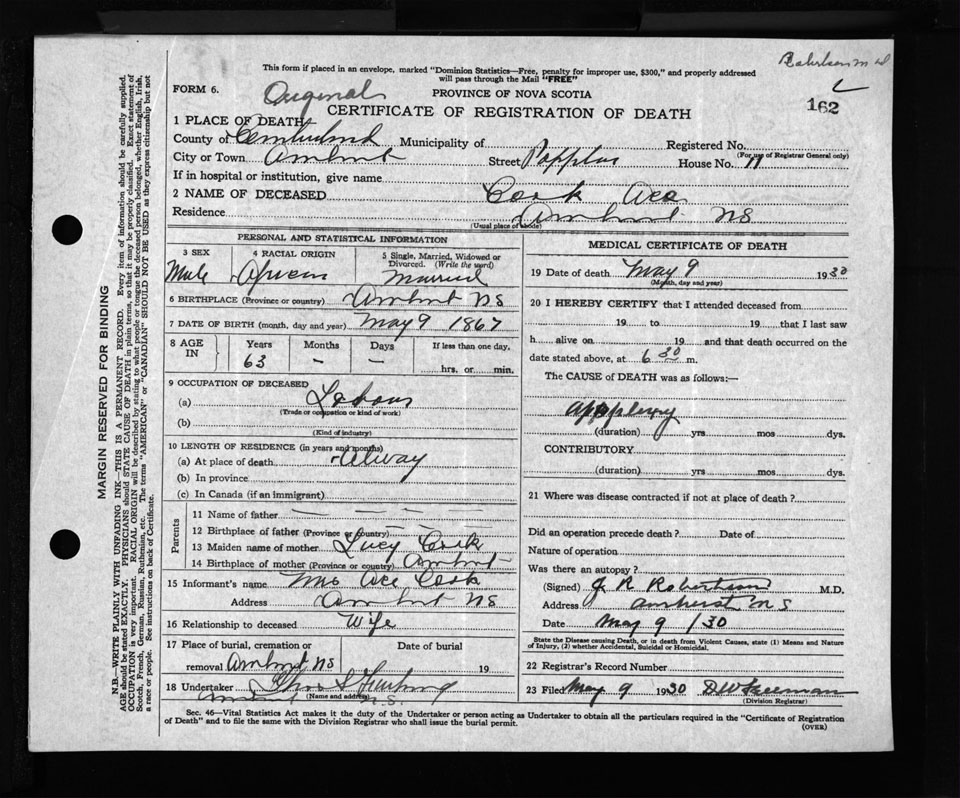 Robertson M D
This form if placed in an envelope, marked "Dominion Statistics—Free, penalty for improper use, $300," and properly addressed
will pass through the Mail "FREE"
FORM 6. Original PROVINCE OF NOVA SCOTIA
162
CERTIFICATE OF REGISTRATION OF DEATH
1 PLACE OF DEATH
County of Cumberland Municipality of Registered No.
(For use of Registrar General only)
City or Town Amherst Street House No. 11
If in hospital or institution, give name
2 NAME OF DECEASED Cook Ace
Residence Amherst NS
(Usual place of abode)
PERSONAL AND STATISTICAL INFORMATION
3 SEX 4 RACIAL ORIGIN 5 Single, Married, Widowed or
Divorced. (Write the word)
Male African Married
6 BIRTHPLACE (Province or country) Amherst NS
7 DATE OF BIRTH (month, day and year) May 9 1867
8 AGE IN Years Months Days If less than one day,
63 — — hrs. or min.
9 OCCUPATION OF DECEASED
(a) Labour
(Trade or occupation or kind of work)
(b)
(Kind of industry)
10 LENGTH OF RESIDENCE (in years and months)
(a) At place of death Alway
(b) In province
(c) In Canada (if an immigrant)
Parents
11 Name of father — — — —
12 Birthplace of father (Province or country) — — —
13 Maiden name of mother Lucy Cook
14 Birthplace of mother (Province or country) Amherst
15 Informant's name Mrs Ace Cook
Address Amherst NS
16 Relationship to deceased Wife
17 Place of burial, cremation or Date of burial
removal Amherst NS 19
18 Undertaker
(Name and address) N.S.
MEDICAL CERTIFICATE OF DEATH
19 Date of death May 9 1930
(Month, day and year)
20 I HEREBY CERTIFY that I attended deceased from
19 to 19 that I last saw
h alive on 19 and that death occurred on the
date stated above, at 6 30 m.
The CAUSE of DEATH was as follows:—
Applexy
(duration) yrs mos dys.
CONTRIBUTORY
(duration) yrs mos dys.
21 Where was disease contracted if not at place of death ?
Did an operation precede death ? Date of
Nature of operation
Was there an autopsy ?
(Signed) J R Robertson M.D.
Address Amherst N S
Date May 9 /30
State the Disease causing Death, or in death from Violent Causes, state (1) Means and Nature
of Injury, (2) whether Accidental, Suicidal or Homicidal.
22 Registrar's Record Number
23 Filed May 9 1930 D W Freeman
(Division Registrar)
Sec. 46—Vital Statistics Act makes it the duty of the Undertaker or person acting as Undertaker to obtain all the particulars required in the "Certificate of Registration
of Death" and to file the same with the Division Registrar who shall issue the burial permit.
(OVER)
MARGIN RESERVED FOR BINDING
N.B.—WRITE PLAINLY WITH UNFADING INK—THIS IS A PERMANENT RECORD. Every item of information should be carefully supplied.
AGE should be stated EXACTLY. PHYSICIANS should STATE CAUSE OF DEATH in plain terms, so that it may be properly classified. Exact statement of
OCCUPATION is very important. RACIAL ORIGIN will be described by stating to what people or tongue the deceased person belonged, whether English, Irish,
Scotch, French, German, Russian, Ruthenian, etc. The terms "AMERICAN" or "CANADIAN" SHOULD NOT BE USED as they express citizenship but not
a race or people. See instructions on back of Certificate.